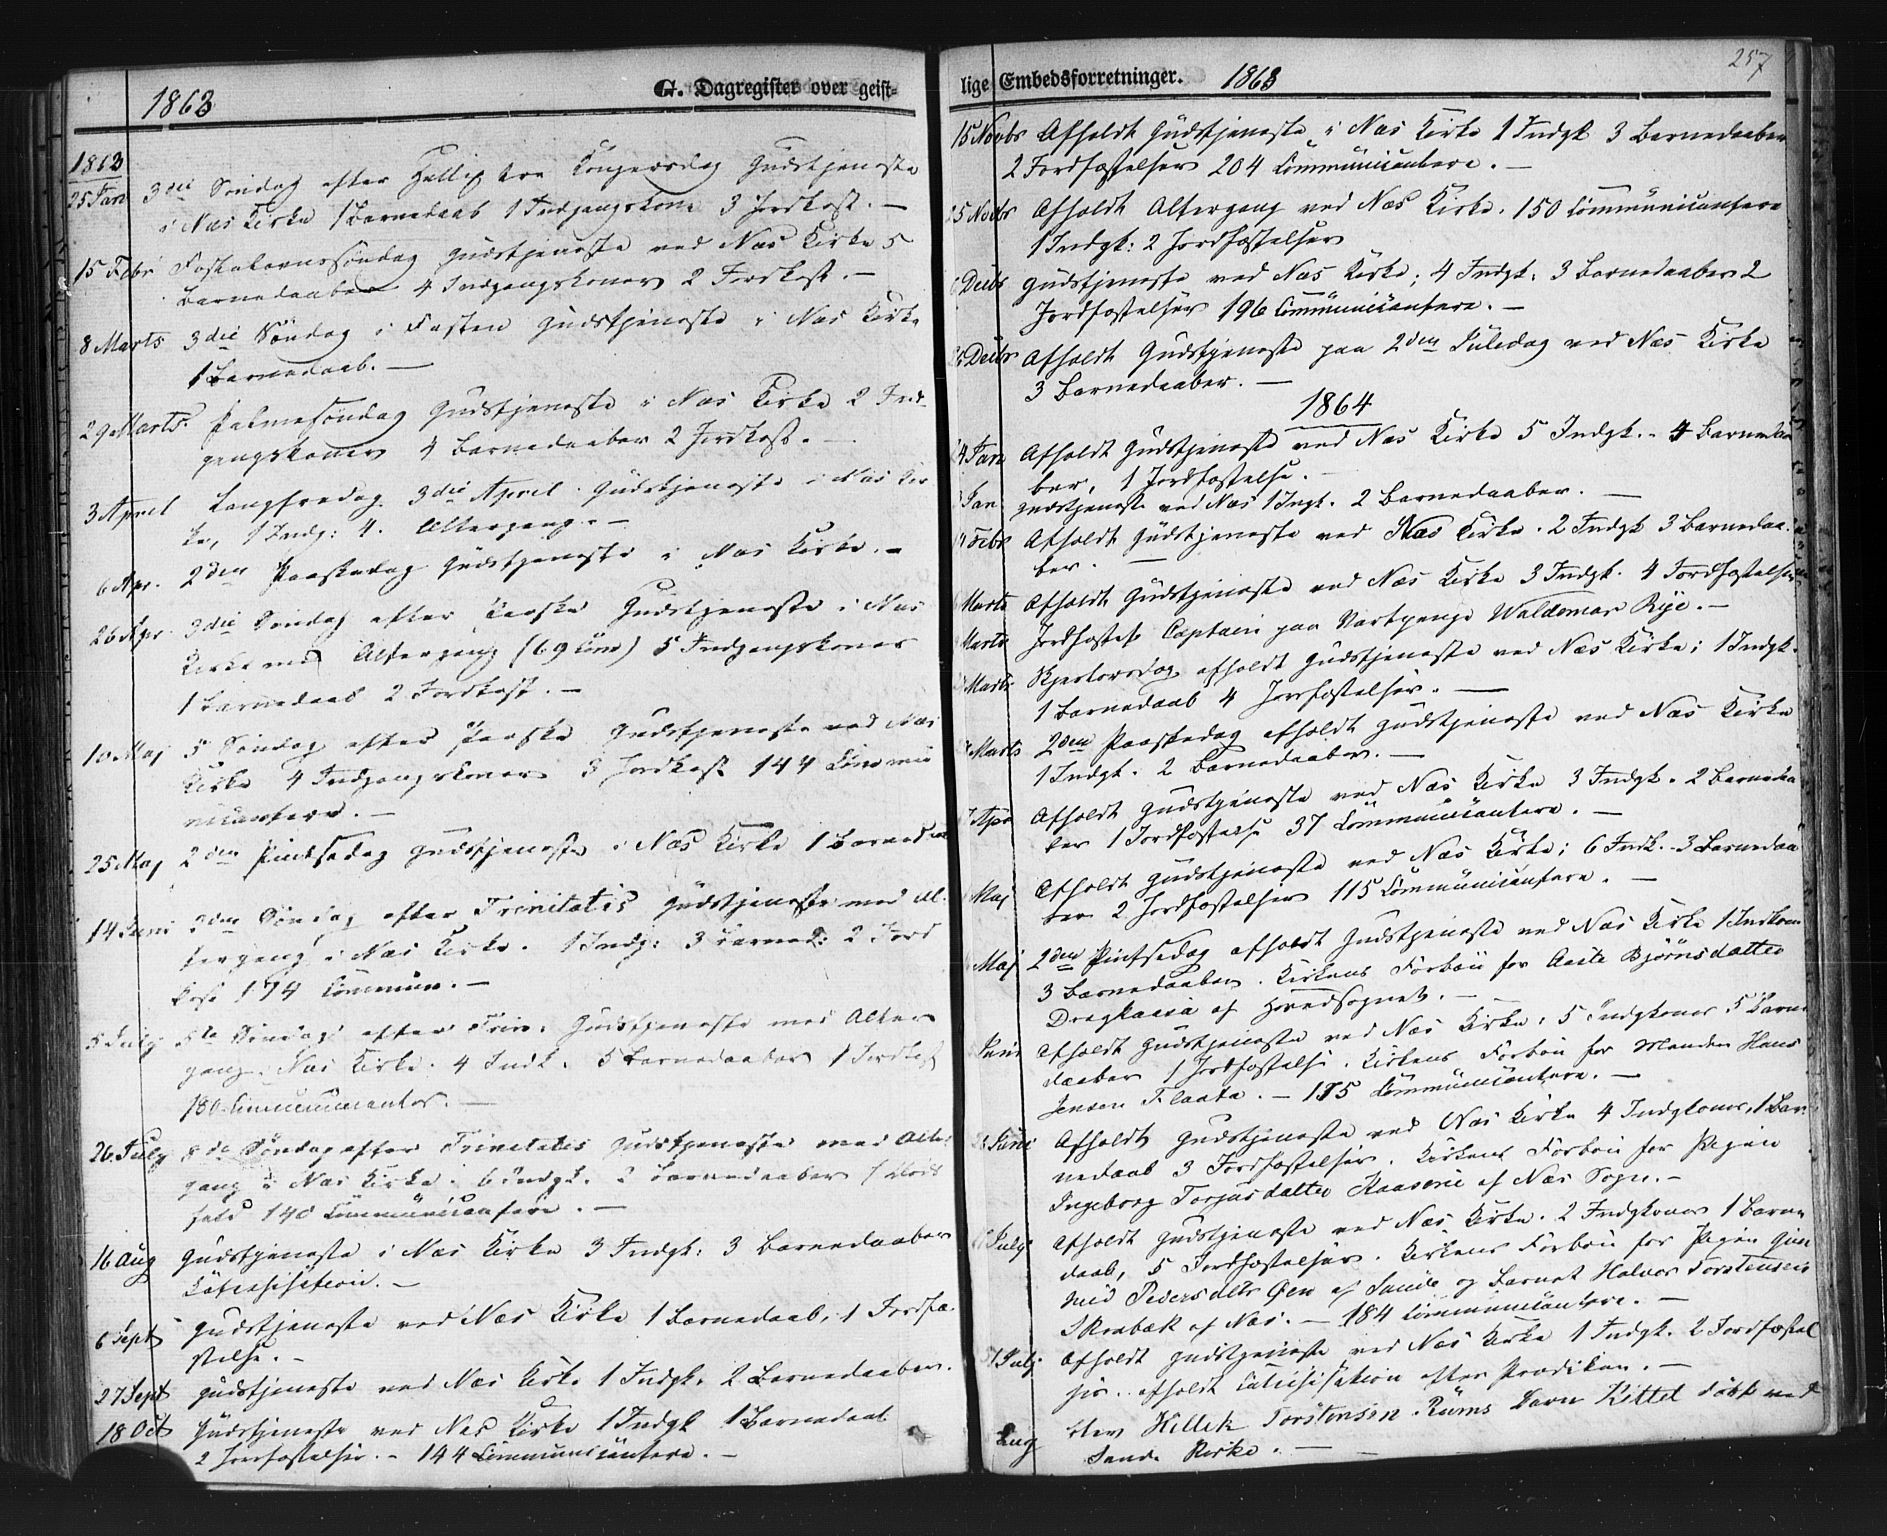 1863
G. Dagregister over geist-
1863
25 Jan 3die Søndag efter Hellig tre Kongersdag Gudstjeneste
i Næs Kirke 1 Barnedaab 1 Indgangskone 3 Jordkast. —
15 Febr Fastelavnssøndag Gudstjeneste ved Næs Kirke 5
Barnedaaber 4 Indgangskoner 2 Jordkast. —
8 Marts 3die Søndag i Fasten Gudstjeneste i Næs Kirke
1 Barnedaab. —
29 Marts. Palmesøndag Gudstjeneste i Næs Kirke 2 Ind-
gangskoner 4 Barnedaaber 2 Jordkast. —
3 April Langfredag 3die April Gudstjeneste i Næs Kir
ke, 1 Indg: 4. Altergang. —
6 Apr. 2den Paaskedag Gudstjeneste i Næs Kirke. —
26 Apr. 3die Søndag efter Paaske Gudstjeneste i Næs
Kirke med Altergang (69 Com) 5 Indgangskoner
1 Barnedaab 2 Jordkast. —
10 Maj 5 Søndag efter Paaske Gudstjeneste ved Næs
Kirke 4 Indgangskoner 3 Jordkast 144 Commu
nicantere. —
25 Maj 2den Pindsedag Gudstjeneste i Næs Kirke 1 Barnedaa
14 Juni 2den Søndag efter Trinitatis Gudstjeneste med Al-
tergang i Næs Kirke. 1 Indg: 3 Barned: 2 Jord
kast 174 Commun. —
5 July 5te Søndag efter Trin. Gudstjeneste med Alter
gang i Næs Kirke. 4 Indk. 5 Barnedaaber 1 Jordkast
180 Communicanter. —
26 July 8de Søndag efter Trinitatis Gudstjeneste med Alter
gang i Næs Kirke. 6 Indgk. 2 Barnedaaber 1
140 Communicantere. —
16 Aug Gudstjeneste i Næs Kirke 3 Indgk: 3 Barnedaaber
Catechisation. —
6 Sept Gudstjeneste ved Næs Kirke 1 Barnedaab, 1 Jordfæ-
stelse. —
27 Sept Gudstjeneste ved Næs Kirke 1 Indgk. 2 Barnedaaber.
18 Oct Gudstjeneste ved Næs Kirke 1 Indgk 1 Barnedaab
2 Jordfæstelser. — 144 Communicantere. —
lige Embedsforretninger. 1863
257
15 Novbr Afholdt Gudstjeneste i Næs Kirke 1 Indgk 3 Barnedaaber
2 Jordfæstelser 204 Communicantere. —
25 Novbr Afholdt Altergang ved Næs Kirke. 150 Communicantere
1 Indgk: 2 Jordfæstelser
Decbr Gudstjeneste ved Næs Kirke; 4 Indgk. 3 Barnedaaber 2
Jordfæstelser 196 Communicantere. —
Decbr Afholdt Gudstjeneste paa 2den Juledag ved Næs Kirke
3 Barnedaaber. —
1864
Jan Afholdt Gudstjeneste ved Næs Kirke 5 Indgk. - 4 Barnedaa
ber, 1 Jordfæstelse. —
Jan Gudstjeneste ved Næs 1 Ingk. 2 Barnedaaber. —
Febr Afholdt Gudstjeneste ved Næs Kirke. 2 Indgk 3 Barnedaa-
ber. —
Marts Afholdt Gudstjeneste ved Næs Kirke 3 Indgk. 4 Jordfæstelser
Marts Jordfæstet Captain paa Vartpenge Waldemar Rye. —
Marts Skjertorsdag afholdt Gudstjeneste ved Næs Kirke; 1 Indgk.
1 Barnedaab 4 Jordfæstelser. —
Marts 2den Paaskedag afholdt Gudstjeneste ved Næs Kirke
1 Indgk. 2 Barnedaaber. —
Apr Afholdt Gudstjeneste ved Næs Kirke 3 Indgk. 2 Barnedaa
ber 1 Jordfæstelse 37 Communicantere. —
Maj Afholdt Gudstjeneste ved Næs Kirke; 6 Indk. - 3 Barnedaa
ber 2 Jordfæstelser 115 Communicantere. —
Maj 2den Pintsedag afholdt Gudstjeneste ved Næs Kirke 1 Indkone
3 Barnedaaber. Kirkens Forbøn for Aaste Bjørnsdatter
af Hovedsognet. —
Juni Afholdt Gudstjeneste ved Næs Kirke, 5 Indgkoner 5 Barne
daaber 1 Jordfæstelse. Kirkens Forbøn for Manden Hans
Jensen Flaata. — 175 Communicantere. —
Juni Afholdt Gudstjeneste ved Næs Kirke 4 Indgkoner, 1 Bar-
nedaab 3 Jordfæstelser. Kirkens Forbøn for Pigen
Ingeborg Torjusdatter Haaserie af Næs Sogn. —
July Afholdt Gudstjeneste ved Næs Kirke. 2 Indgkoner 1 Barne
daab, 5 Jordfæstelser. Kirkens Forbøn for Pigen Gun
hild Pedersdtr Øen af Saude og Barnet Halvor Torstensen
Skrabæk af Næs. — 184 Communicantere. —
July Afholdt Gudstjeneste ved Næs Kirke 1 Indgk. 2 Jordfæstel
ser. afholdt Catechisation efter Prædiken. —
Aug blev Hellek Torstensen Rums Barn Kittel døbt ved
Saude Kirke. —